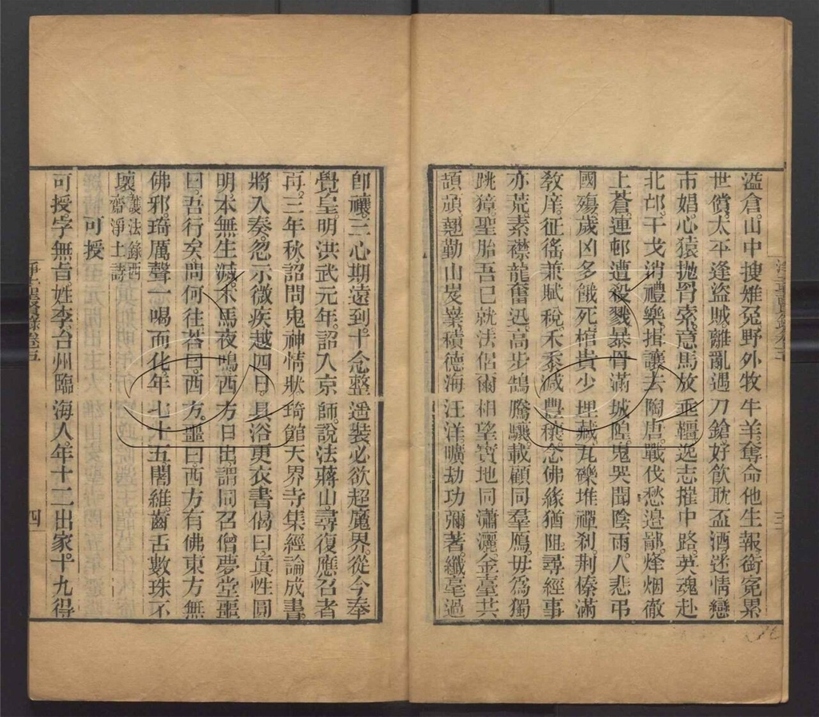 溢倉山中搜雉兔野外牧牛羊奪命他生報銜冤累
世償太平逢盜賊離亂遇刀鎗好飲耽盃酒迷情戀
市娼心猿拋胃索意馬放垂韁逸志摧中路英魂赴
北邙干戈消禮樂揖讓去陶唐戰伐愁邊鄙烽烟徹
上蒼連邨遭殺戮暴骨滿城隍鬼哭聞陰雨人悲弔
國殤歲凶多餓死棺貴少埋藏瓦礫堆禪刹荆榛滿
敎庠征徭兼賦稅禾黍減豐穰念佛緣猶阻尋經事
亦荒素襟龍奮迅高步鵠騰驤載顧同羣鴈毋爲獨
跳獐聖胎吾已就法侶爾相望寶地同瀟灑金臺共
頡頏翹勤山岌嶪積德海汪洋曠劫功彌著纖毫過
卽禳三心期遠到十念整遄裝必欲超魔界從今奉
覺皇明洪武元年詔入京師說法蔣山尋復應召者
再三年秋詔問鬼神情狀琦館天界寺集經論成書
將入奏忽示微疾越四日具浴更衣書偈曰眞性圓
明本無生滅木馬夜鳴西方日出謂同召僧夢堂噩
曰吾行矣問何往答曰西方噩曰西方有佛東方無
佛邪琦厲聲一喝而化年七十五闍維齒舌數珠不
壞護法錄西
齋淨土詩
可授
可授字無旨姓李台州臨海人年十二出家十九得
淨土聖賢錄卷五
四